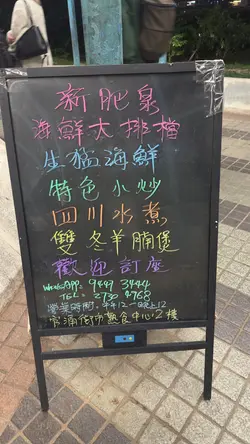 新肥泉
海鮮大排檔
生猛海鮮
特色小炒
四川水煮
雙冬羊腩煲
歡迎訂座
WhatsApp: 9449 3444
TEL: 2730 4768
營業時間: 中午12-晚上12
官涌街市熟食中心2樓